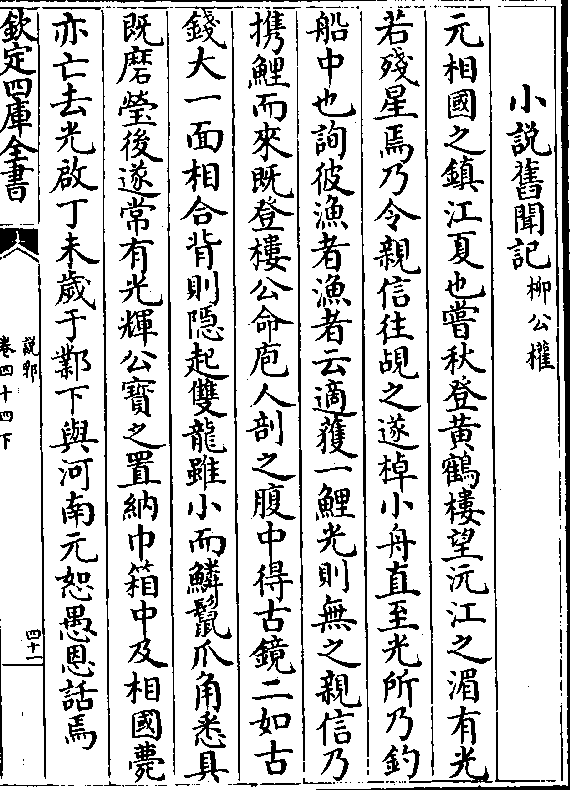 小說舊聞記 柳公權
元相國之鎮江夏也嘗秋登黄鶴樓望沅江之湄有光
若殘星焉乃令親信往覘之遂棹小舟直至光所乃釣
船中也詢彼漁者漁者云適獲一鯉光則無之親信乃
携鯉而來既登樓公命庖人剖之腹中得古鏡二如古
錢大一面相合背則隠起雙龍雖小而鱗鬛爪角悉具
既磨瑩後遂常有光輝公寳之置納巾箱中及相國薨
亦亡去光啟丁未歲于鄴下與河南元恕愚恩話焉
欽定四庫全書
說郛
卷四十四下
四十一